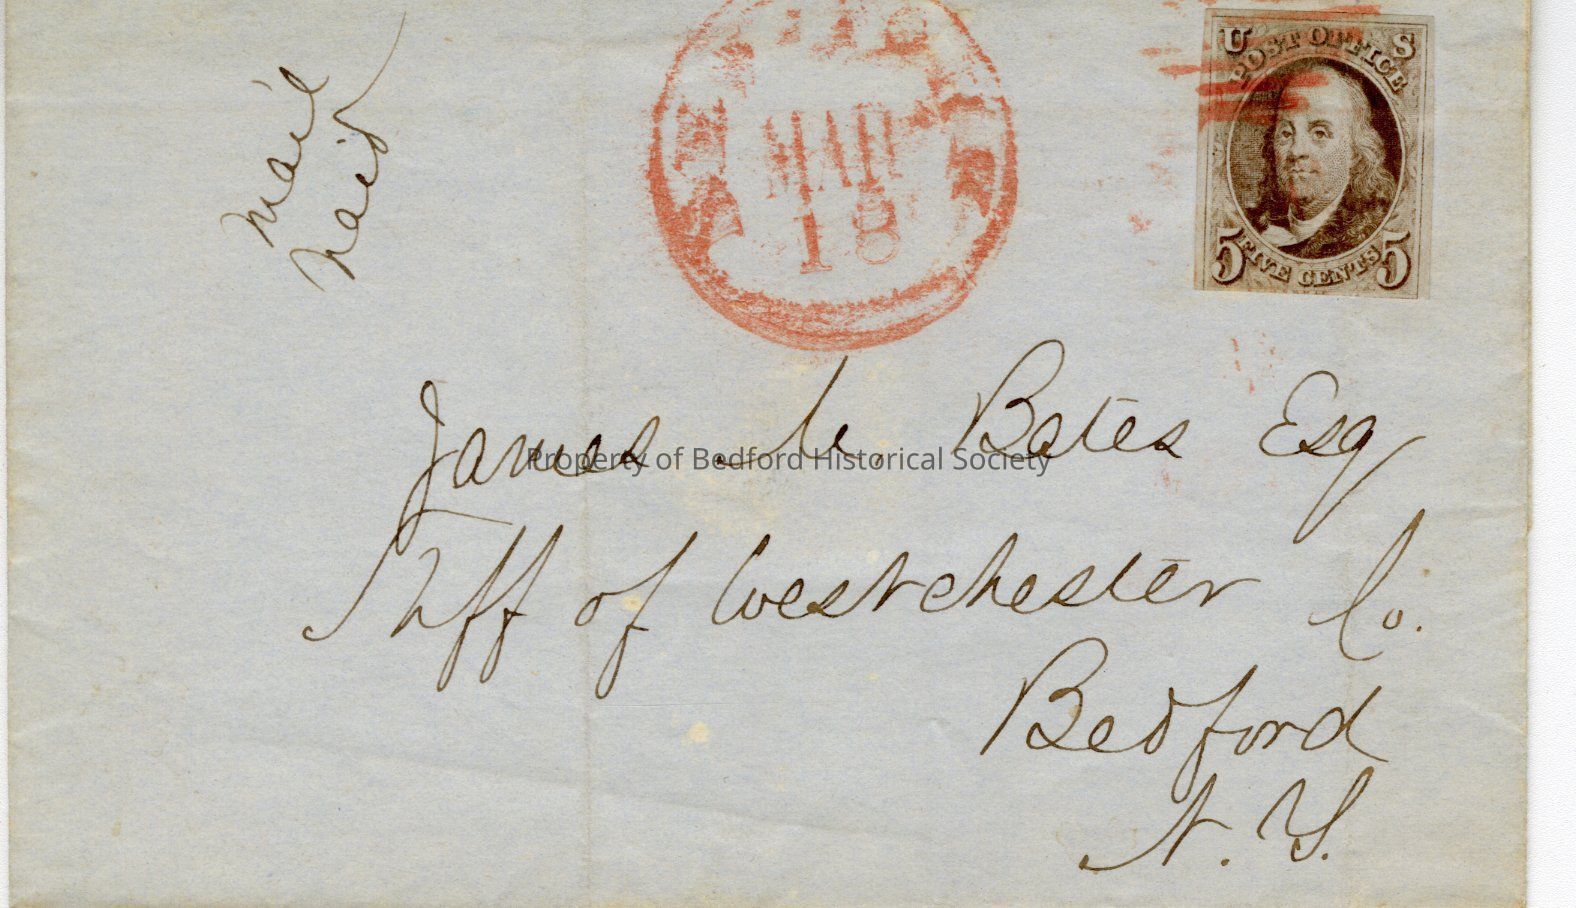 mail
paid
MAR
18
U S
POST OFFICE
5 FIVE CENTS 5
James M. Bates Esq
Property of Bedford Historical Society
Shff of Westchester Co.
Bedford
N. Y.